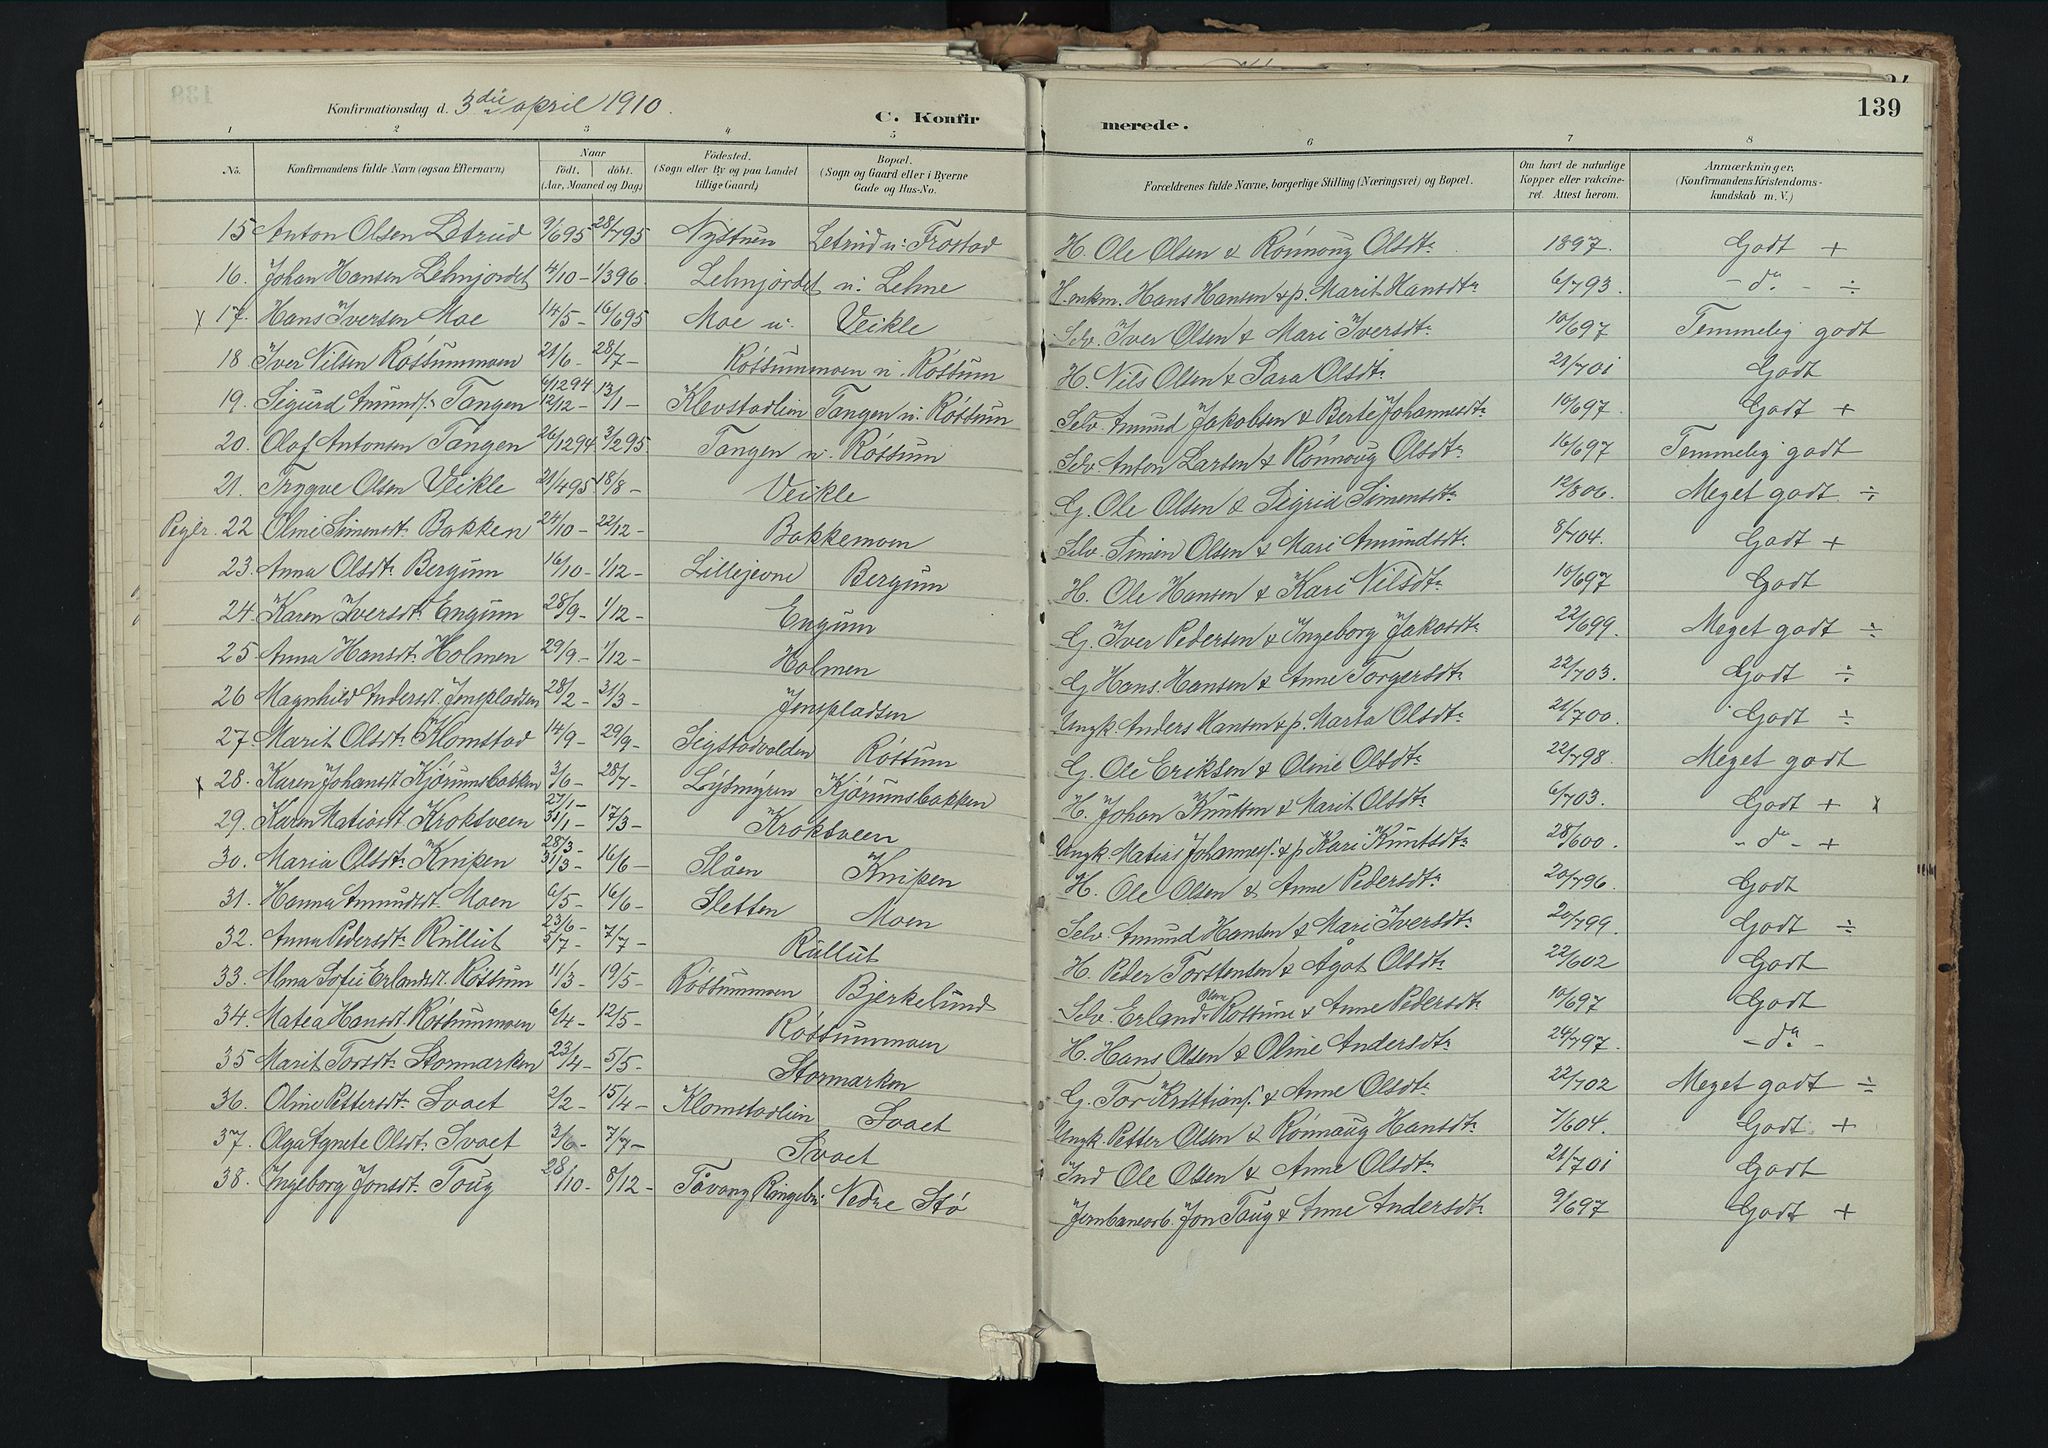 139
Konfirmationsdag d. 3die april 1910.
C. Konfirmerede.
1 2 3 4 5 6 7 8
No. Konfirmandens fulde Navn (ogsaa Efternavn) Naar født. døbt. (Aar, Maaned og Dag) Fødested. (Sogn eller By og paa Landet tillige Gaard) Bopæl. (Sogn og Gaard eller i Byerne Gade og Hus-No. Forældrenes fulde Navne, borgerlige Stilling (Næringsvei) og Bopæl. Om havt de naturlige Kopper eller vakcineret. Attest herom. Anmærkninger. (Konfirmandens Kristendomskundskab m. V.)
15 Anton Olsen Letrud 9/6 95 28/7 95 Nystuen Letrud u. Frostad H. Ole Olsen & Rønnoug Olsdtr 1897. Godt +
16. Johan Hansen Lehnjordet 4/10 - 1/3 96. Lehnjordet u. Lehne H. enkm. Hans Hansen & p. Marit Hansdtr 6/7 93. - do - ÷
x 17. Hans Iversen Moe 14/5 - 16/6 95 Moe u. Veikle Selv. Iver Olsen & Mari Iversdtr 10/6 97 Temmelig godt
18 Iver Nilsen Røssummoen 21/6 - 28/7 - Røssummoen u. Røssum H. Nils Olsen & Sara Olsdtr 21/7 01 Godt
19. Sigurd Amunds. Tangen 6/12 94 12/12 - 13/1 - Klevstadlien Tangen u. Røssum Selv. Amund Jakobsen & Berte Johannesdtr 10/6 97. Godt +
20. Olaf Antonsen Tangen 26/12 94 3/2 95. Tangen u. Røssum Selv. Anton Larsen & Rønnoug Olsdtr 16/6 97 Temmelig godt
21. Trygve Olsen Veikle 21/4 95 18/8 - Veikle G. Ole Olsen & Sigrid Simensdtr 12/8 06. Meget godt ÷
22 Oline Simensdt. Bakken 24/10 - 22/12 - Bakkemoen Selv. Simen Olsen & Mari Amundsdtr 8/7 04. Godt +
23. Anna Olsdtr Bergum 16/10 - 1/12 - Lillejevne Bergum H. Ole Hansen & Kari Nilsdtr 10/6 97 Godt
24. Karen Iversdt. Engum 28/9 - 1/12 - Engum G. Iver Pedersen & Ingeborg Jakobsdtr 22/6 99. Meget godt ÷
25. Anna Hansdt. Holmen 29/9 - 1/12 - Holmen G. Hans Hansen & Anne Torgersdtr 22/7 03. Godt ÷
26 Magnhild Andersdt. Jenspladsen 28/2 - 31/3 - Jenspladsen Ungk. Anders Hansen & p. Marta Olsdtr 21/7 00. Godt ÷
27. Marit Olsdtr Klomstad 14/9 - 29/9 - Sigstadvolden Røssum G. Ole Eriksen & Oline Olsdtr 22/7 98. Meget godt
x 28. Karen Johansdt Kjørumsbakken 3/6 - 28/7 - Lysmyren Kjørumsbakken H. Johan Knutsen & Marit Olsdtr 6/7 03. Godt + x
29. Karen Matiasdt Kroksveen 27/1 - 31/1 - 17/3 - Kroksveen Ungk. Matias Johannes. & p. Kari Knutsdtr 28/6 00. - do - +
30. Maria Olsdtr Knipen 28/3 - 31/3 - 16/6 - Slåen Knipen H. Ole Olsen & Anne Pedersdtr 20/7 96. Godt
31. Hanna Amundsdt. Moen 6/5 - 16/6 - Sletten Moen Selv. Amund Hansen & Mari Iversdtr 20/7 99. Godt ÷
32. Anna Pedersdtr Rullut 23/6 - 5/7 - 7/7 - Rullut H. Peder Torstensen & Ågot Olsdtr 22/6 02 Godt
33. Alma Sofie Erlandsdt Røssum 11/3 - 19/5 - Røssummoen Bjerkelund Selv. Erland Olsen Røssum & Anne Pedersdtr 10/6 97 Godt
34. Matea Hansdt. Røssummoen 6/4 - 12/5 - Røssummoen H. Hans Olsen & Oline Andersdtr 24/7 97. - do -
35 Marit Torsdtr Stormarken 23/4 - 5/5 - Stormarken G. Tor Kristians. & Anne Olsdtr 22/7 02 Meget godt ÷
36. Oline Pettersdtr Svaet 2/2 - 15/4 - Klomstadlien Svaet Ungk. Petter Olsen & Rønnaug Hansdtr 7/6 04. Godt +
37. Olga Agnete Olsdt. Svaet 3/6 - 7/7 - Svaet Ind. Ole Olsen & Anne Olsdtr 21/7 01 Godt
38. Ingeborg Jonsdt. Toug 28/10 - 8/12 - Fåvang Ringebu Nedre Stø Jernbanearb. Jon Toug & Anne Andersdtr 9/6 97 Godt +